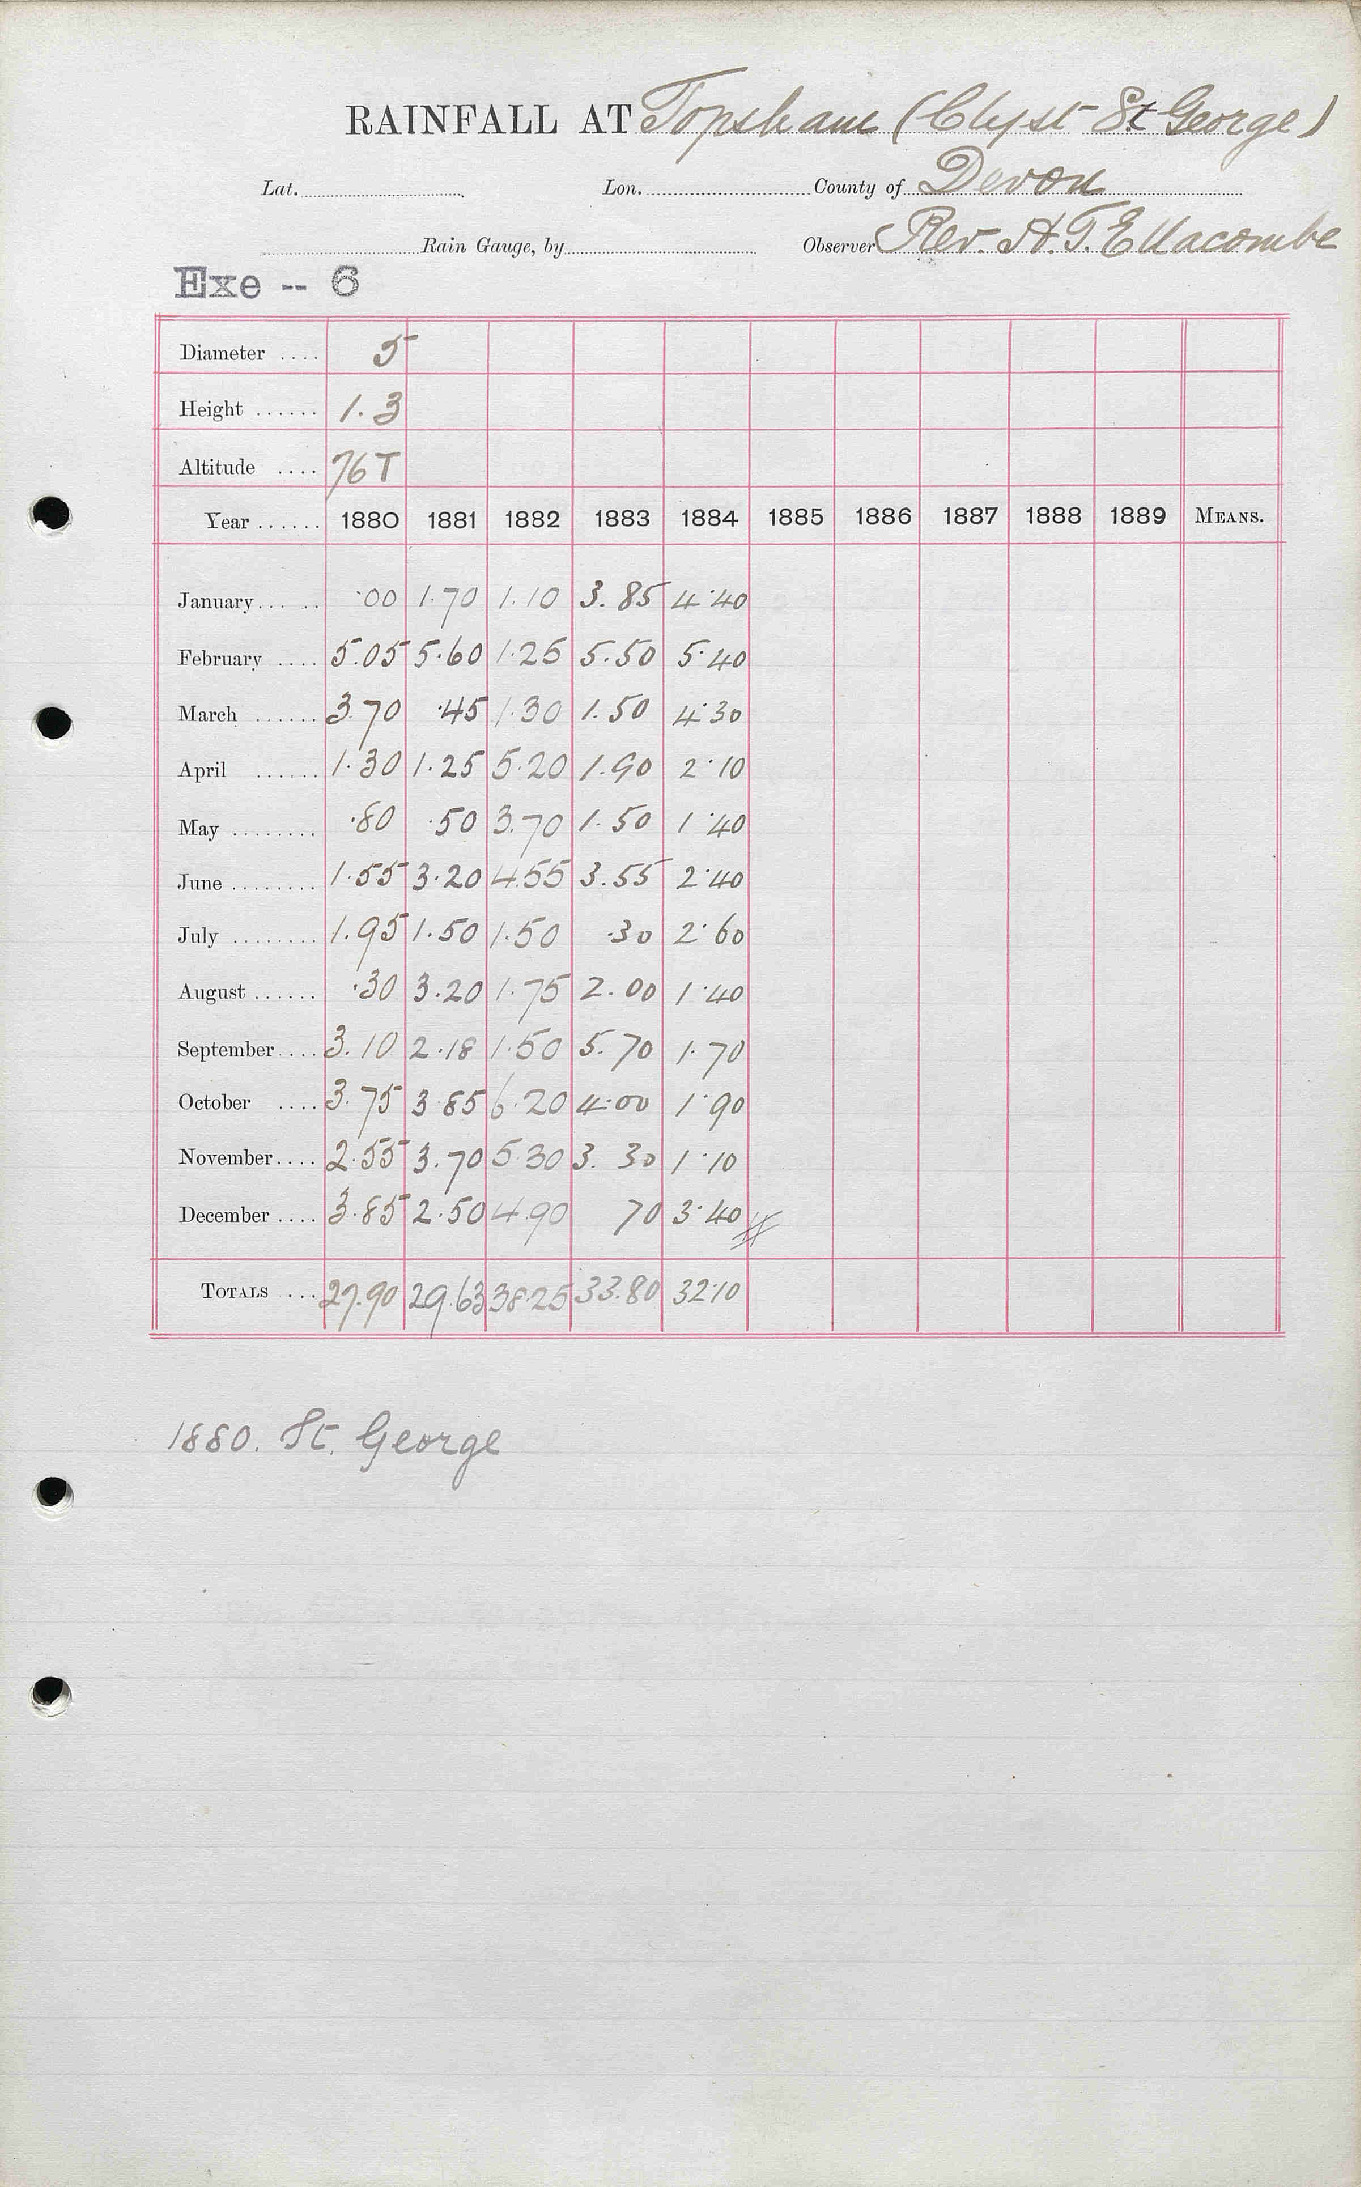 RAINFALL AT Topsham (Clyst St George)
Lat. Lon. County of Devon
Rain Gauge, by Observer Rev. H.T. Ellacombe
Exe -- 6
Diameter .... 5
Height ...... 1.3
Altitude .... 76T
Year ...... 1880 1881 1882 1883 1884 1885 1886 1887 1888 1889 MEANS.
January ..... ·00 1.70 1.10 3.85 4.40
February .... 5.05 5.60 1.25 5.50 5.40
March ...... 3.70 ·45 1.30 1.50 4.30
April ...... 1.30 1.25 5.20 1.90 2.10
May ........ ·80 ·50 3.70 1.50 1.40
June ........ 1.55 3.20 4.55 3.55 2.40
July ........ 1.95 1.50 1.50 ·30 2.60
August ...... ·30 3.20 1.75 2.00 1.40
September .... 3.10 2.18 1.50 5.70 1.70
October .... 3.75 3.85 6.20 4.00 1.90
November .... 2.55 3.70 5.30 3.30 1.10
December .... 3.85 2.50 4.90 70 3.40
TOTALS .... 27.90 29.63 38.25 33.80 32.10
1880. St. George